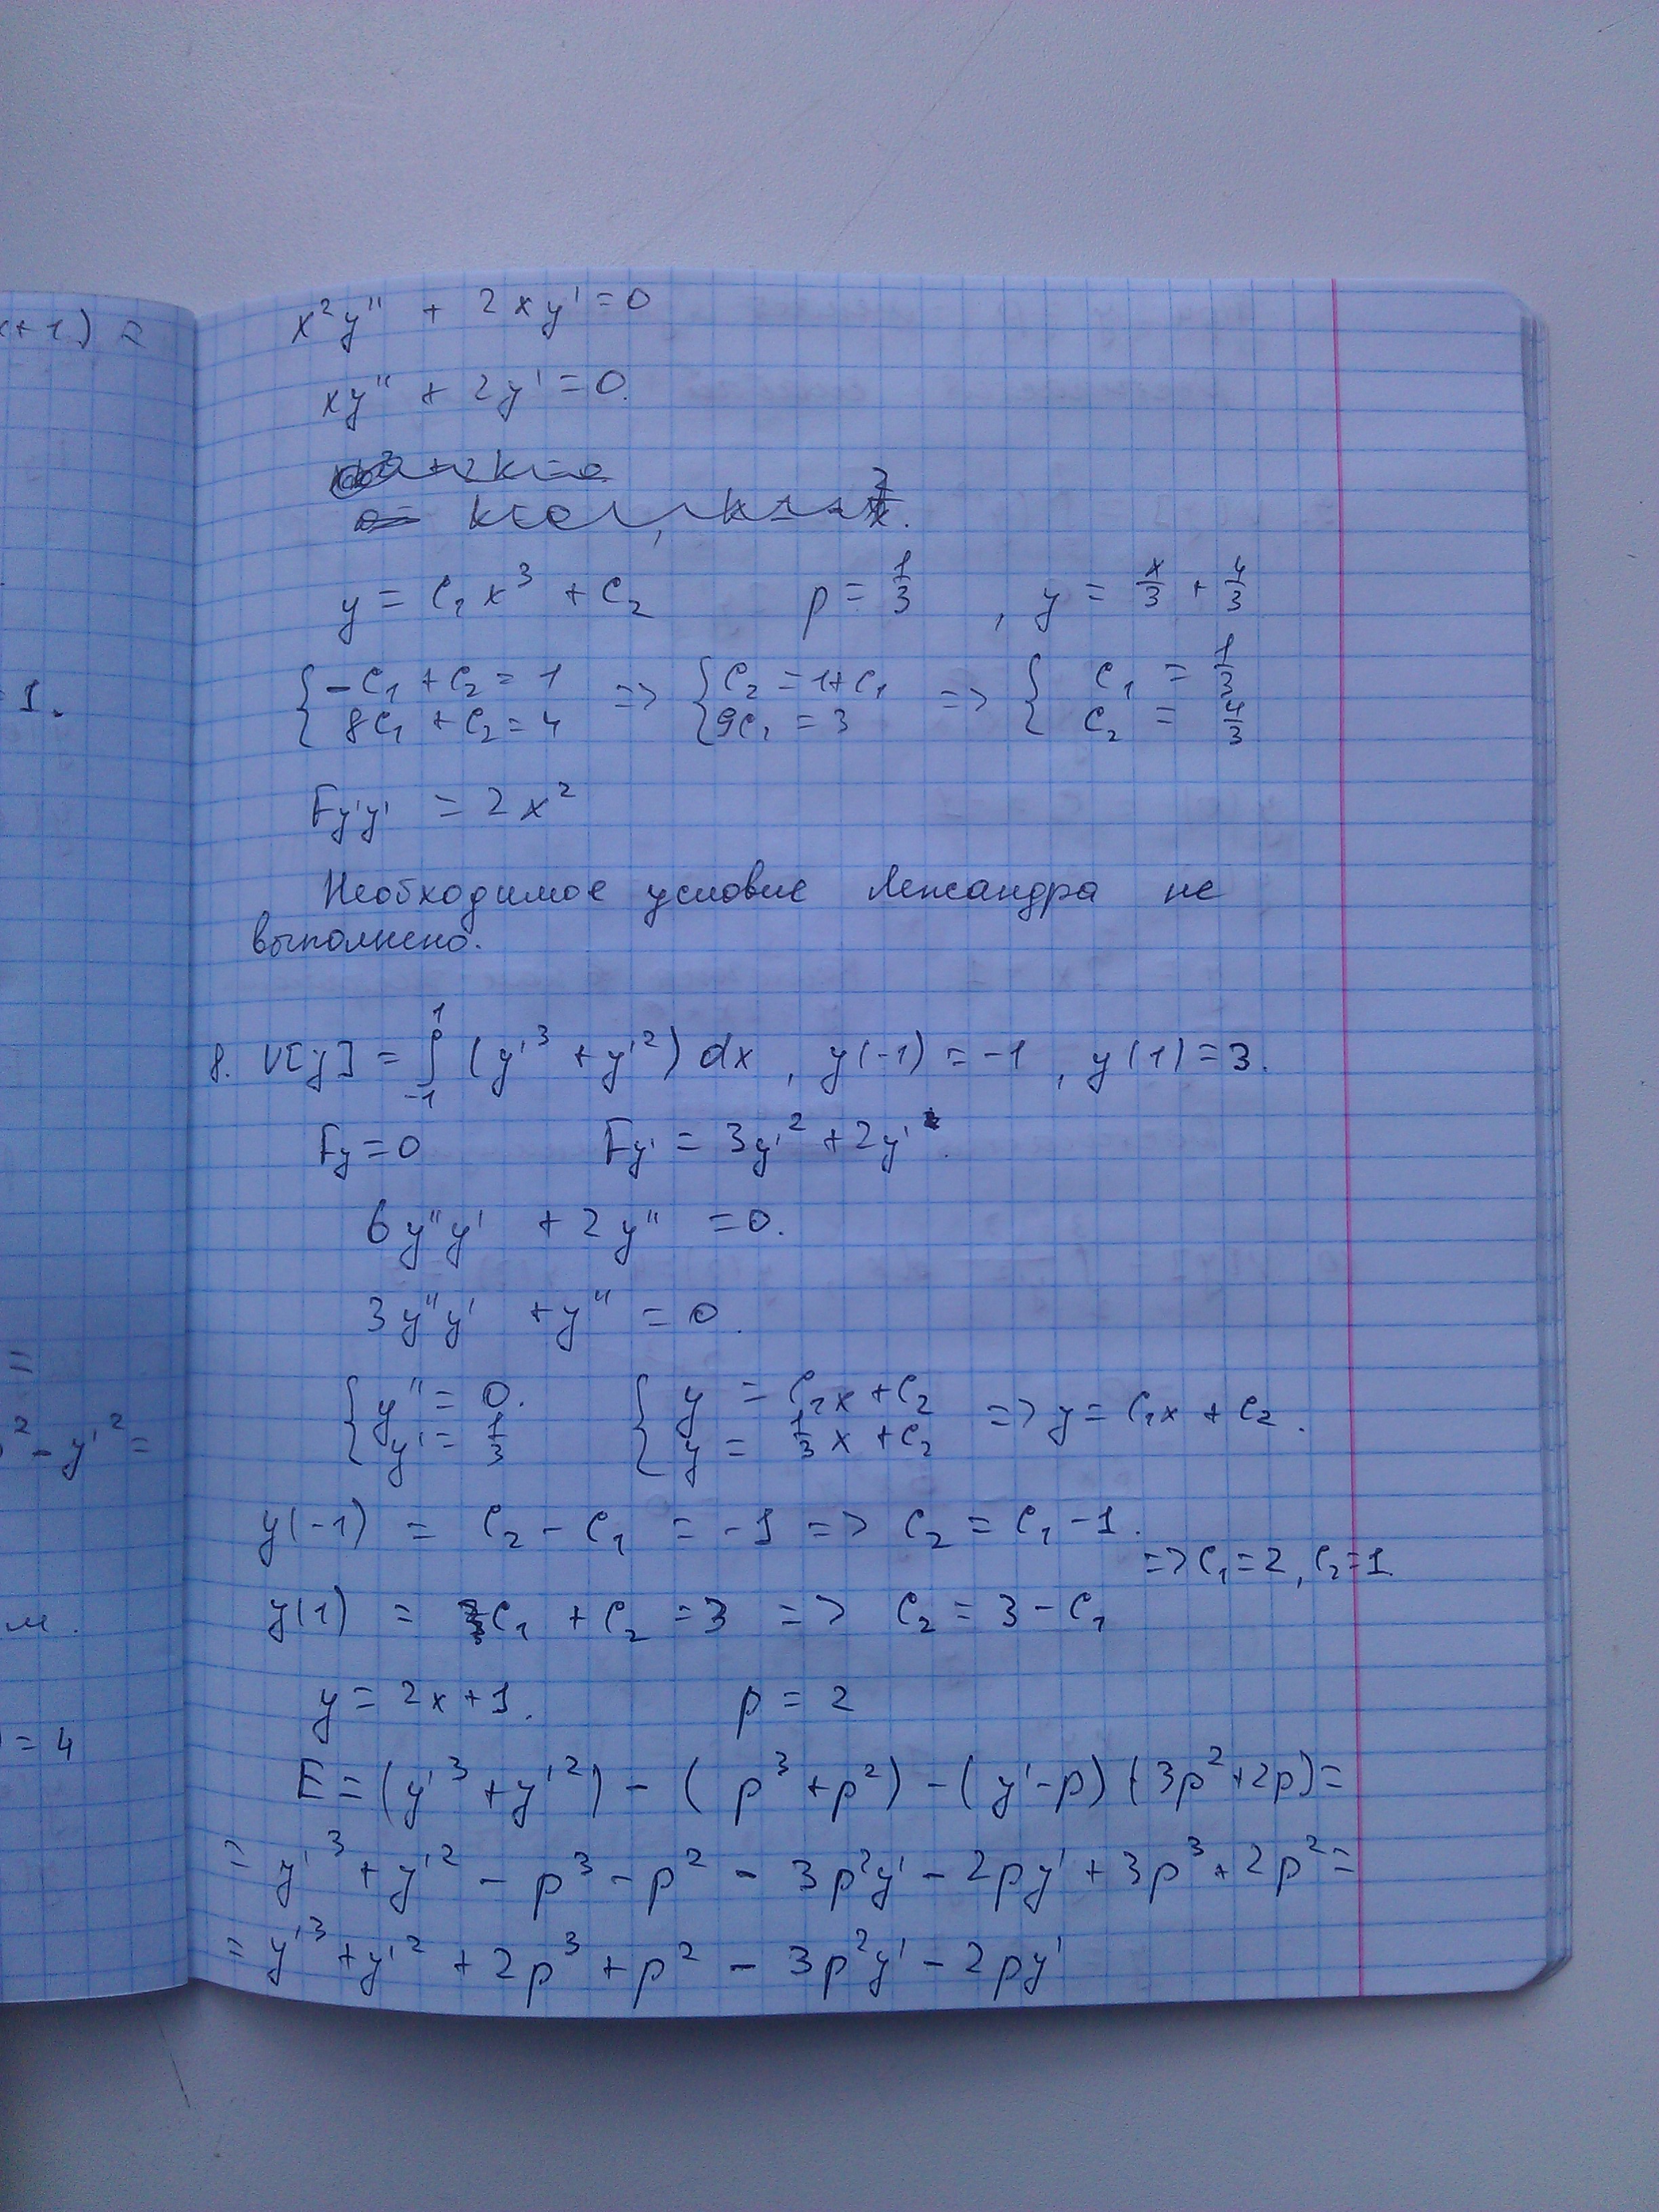 x²y'' + 2xy' = 0
xy'' + 2y' = 0.
y = C₁x³ + C₂ p = 1/3 , y = x/3 + 4/3
{ -C₁ + C₂ = 1 => { C₂ = 1+C₁ => { C₁ = 1/3
8C₁ + C₂ = 4 9C₁ = 3 C₂ = 4/3
Fy'y' = 2x²
Необходимое условие Лежандра не
выполнено.
8. V[y] = ∫₋₁¹ (y'³ + y'²) dx , y(-1) = -1 , y(1) = 3.
Fy = 0 Fy' = 3y'² + 2y'.
6y''y' + 2y'' = 0.
3y''y' + y'' = 0.
{ y'' = 0. { y = C₁x + C₂ => y = C₁x + C₂.
y' = 1/3 y = 1/3 x + C₂
y(-1) = C₂ - C₁ = -1 => C₂ = C₁ - 1.
=> C₁ = 2, C₂ = 1.
y(1) = C₁ + C₂ = 3 => C₂ = 3 - C₁
y = 2x + 1. p = 2
E = (y'³ + y'²) - (p³ + p²) - (y' - p)(3p² + 2p) =
= y'³ + y'² - p³ - p² - 3p²y' - 2py' + 3p³ + 2p² =
= y'³ + y'² + 2p³ + p² - 3p²y' - 2py'
x+1)
= 1.
=
² - y'² =
м.
= 4